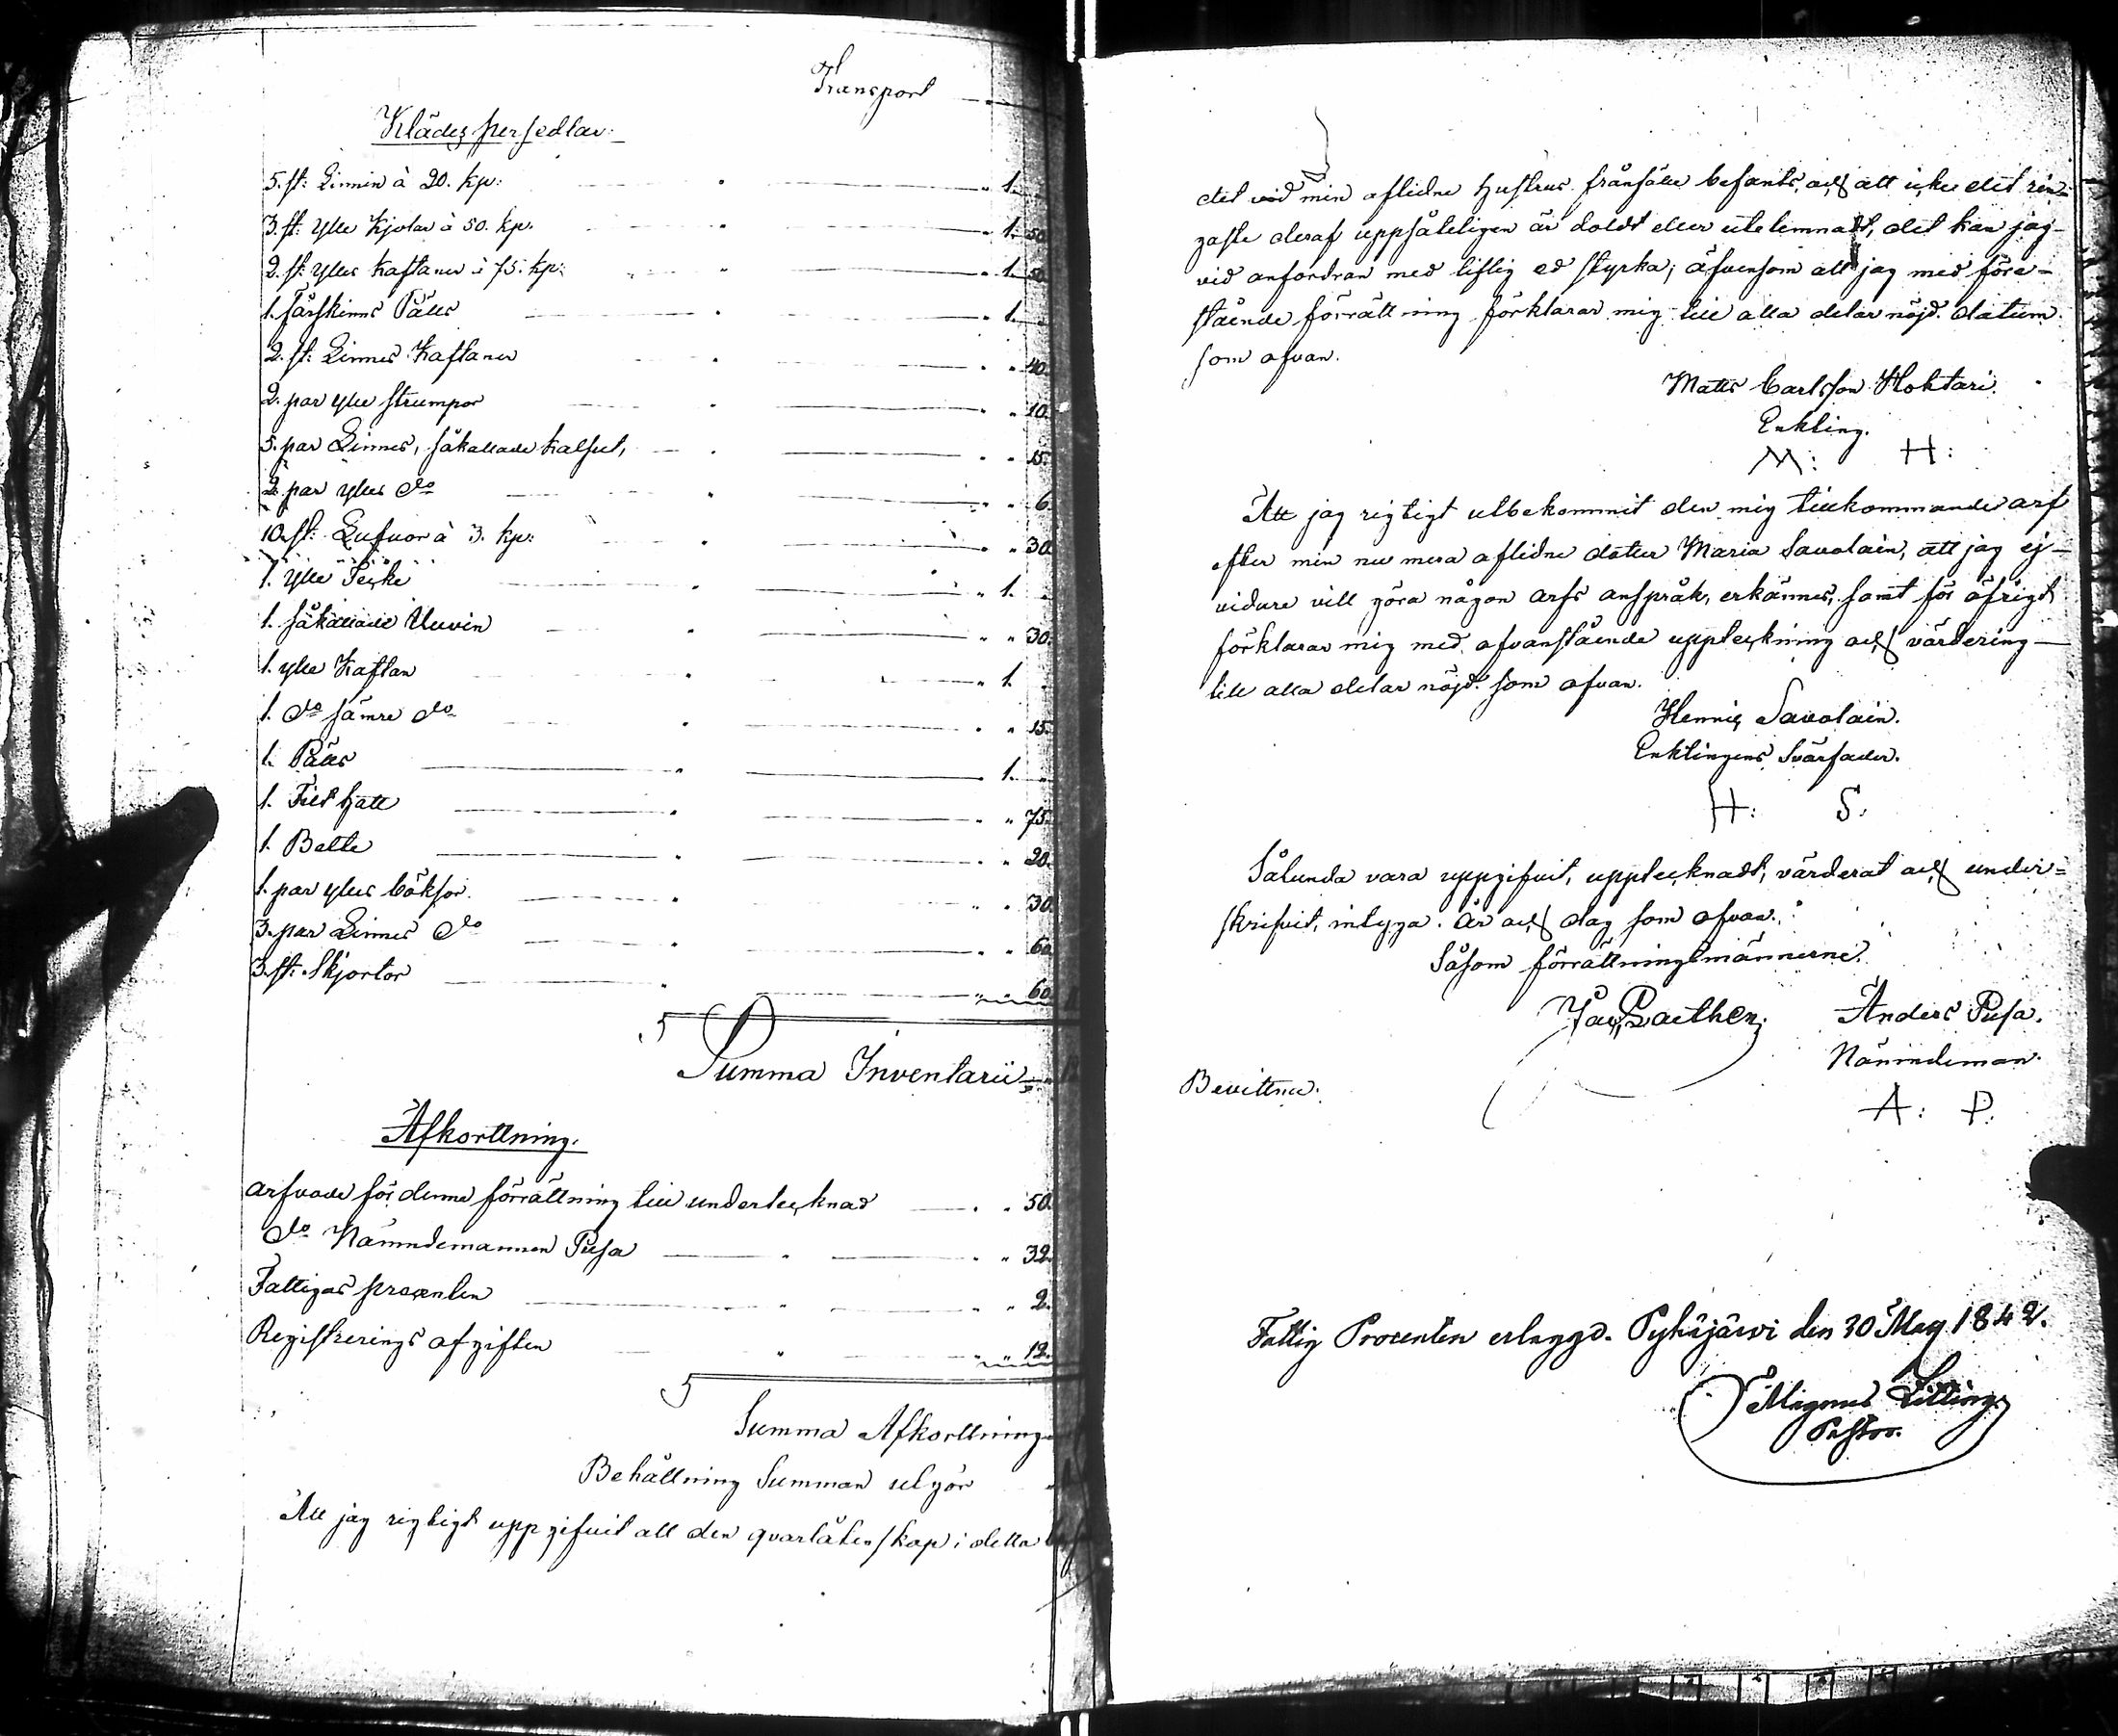 Transport
Klädespersedlar:
5. st: Linnen à 20. kp: 1.
3. st: Ylle Kjolar à 50. kp. 1. 50
2. st: Ylles Kaftaner à 75. kp: 1. 50
1. fårskinns Pälls 1.
2. st: Linnes Kaftaner 40.
2. par ylle strumpor 10.
5. par Linnes, såkallade kalsut, 15.
2. par ylles do 6.
10. st: Lufvor à 3. kp: 30
1. ylle Tecke 1.
1. såkallade 30.
1. ylle Kaftan 1.
1. do sämre do 15.
1. Pälls 1.
1. Filt hatt 75.
1. Bälte 20.
1. par ylles böksor. 30
3. par Linnes do 60
3. st: Skjortor 60.
Summa Inventarii
Afkorttning.
arfvode för denna förrättning till undertecknad 50.
do Nämndemannen Pusa 32.
Fattigas procenten 2.
Registrerings afgiften 12.
Summa Afkorttning
Behållning Summan utgör
Att jag rigtigt uppgifvit all den qvarlåtenskap i detta
det vid min aflidne hustrus frånfälle befants, och att icke det rin-
gaste deraf uppsåteligen är doldt eller utelemnadt, det kan jag
vid anfordran med liflig ed styrka; äfvensom att jag med före-
stående förrättning förklarar mig till alla delar nöjd. datum
som ofvan.
Matts Carlsson Hoktari.
Enkling.
M: H:
Att jag rigtigt utbekommit den mig tillkommande arf
efter min nu mera aflidne dotter Maria Savolain, att jag ej
vidare vill göra någon arfs anspråk, erkännes, samt för öfrigt
förklarar mig med ofvanstående uppteckning och värdering
till alla delar nöjd. som ofvan.
Hennic Savolain.
Enklingens Svärfader.
H: S:
Sålunda vara uppgifvit, upptecknadt, värderat och under=
skrifvit, intyga. År och dag som ofvan.
Såsom förrättningsmännerne.
Anders Pusa.
Nämndeman.
Bevittna:
A: P:
Fattig Procenten erlaggd. Pyhäjärwi den 30 May 1842.
Magnus
Pastor.